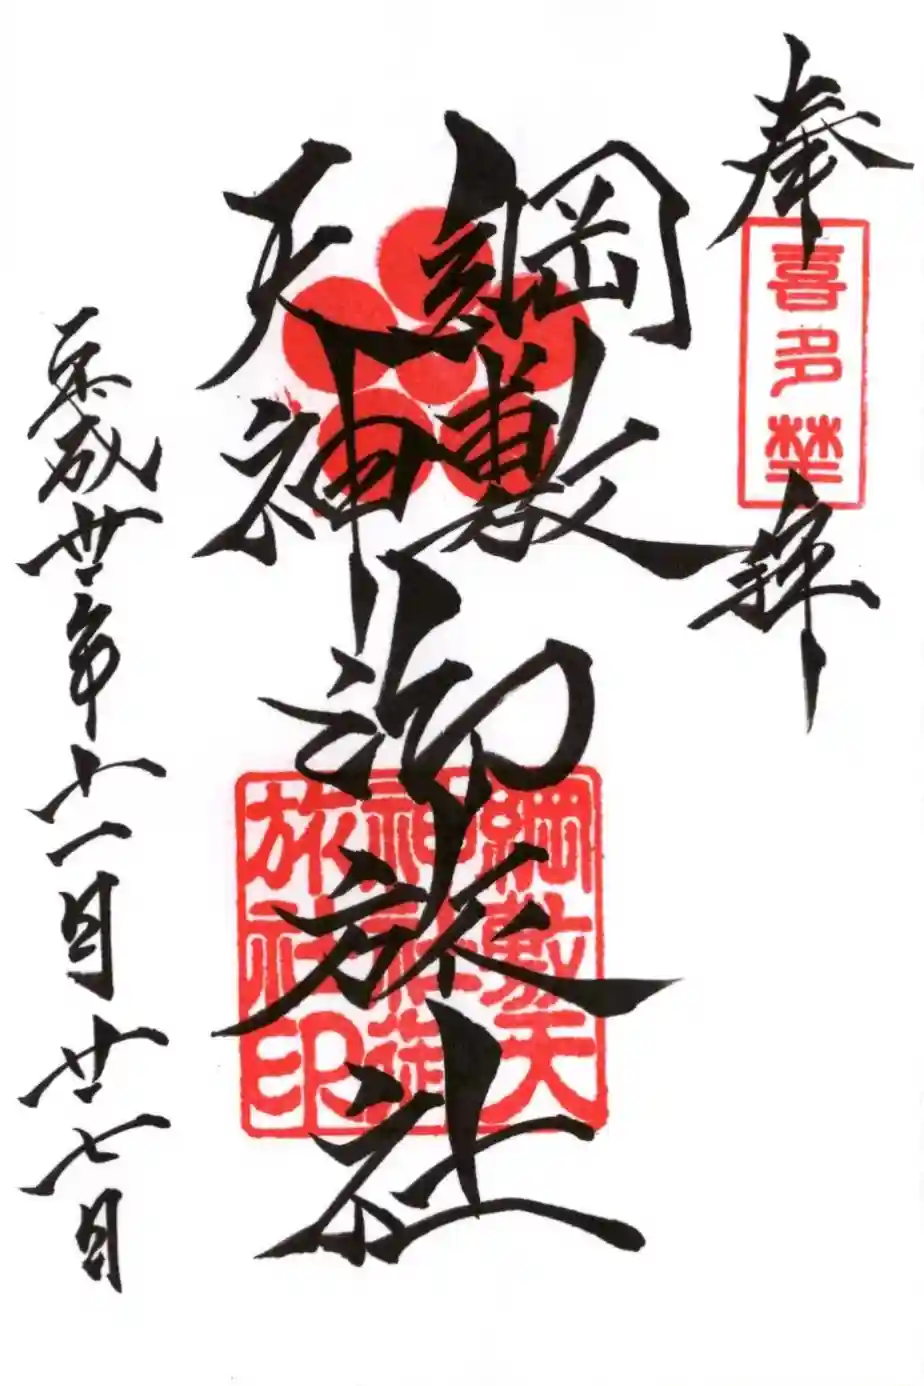 奉拝
喜多埜
綱敷
天神
御旅社
綱敷天
神社御
旅社印
平成廿年十一月廿七日